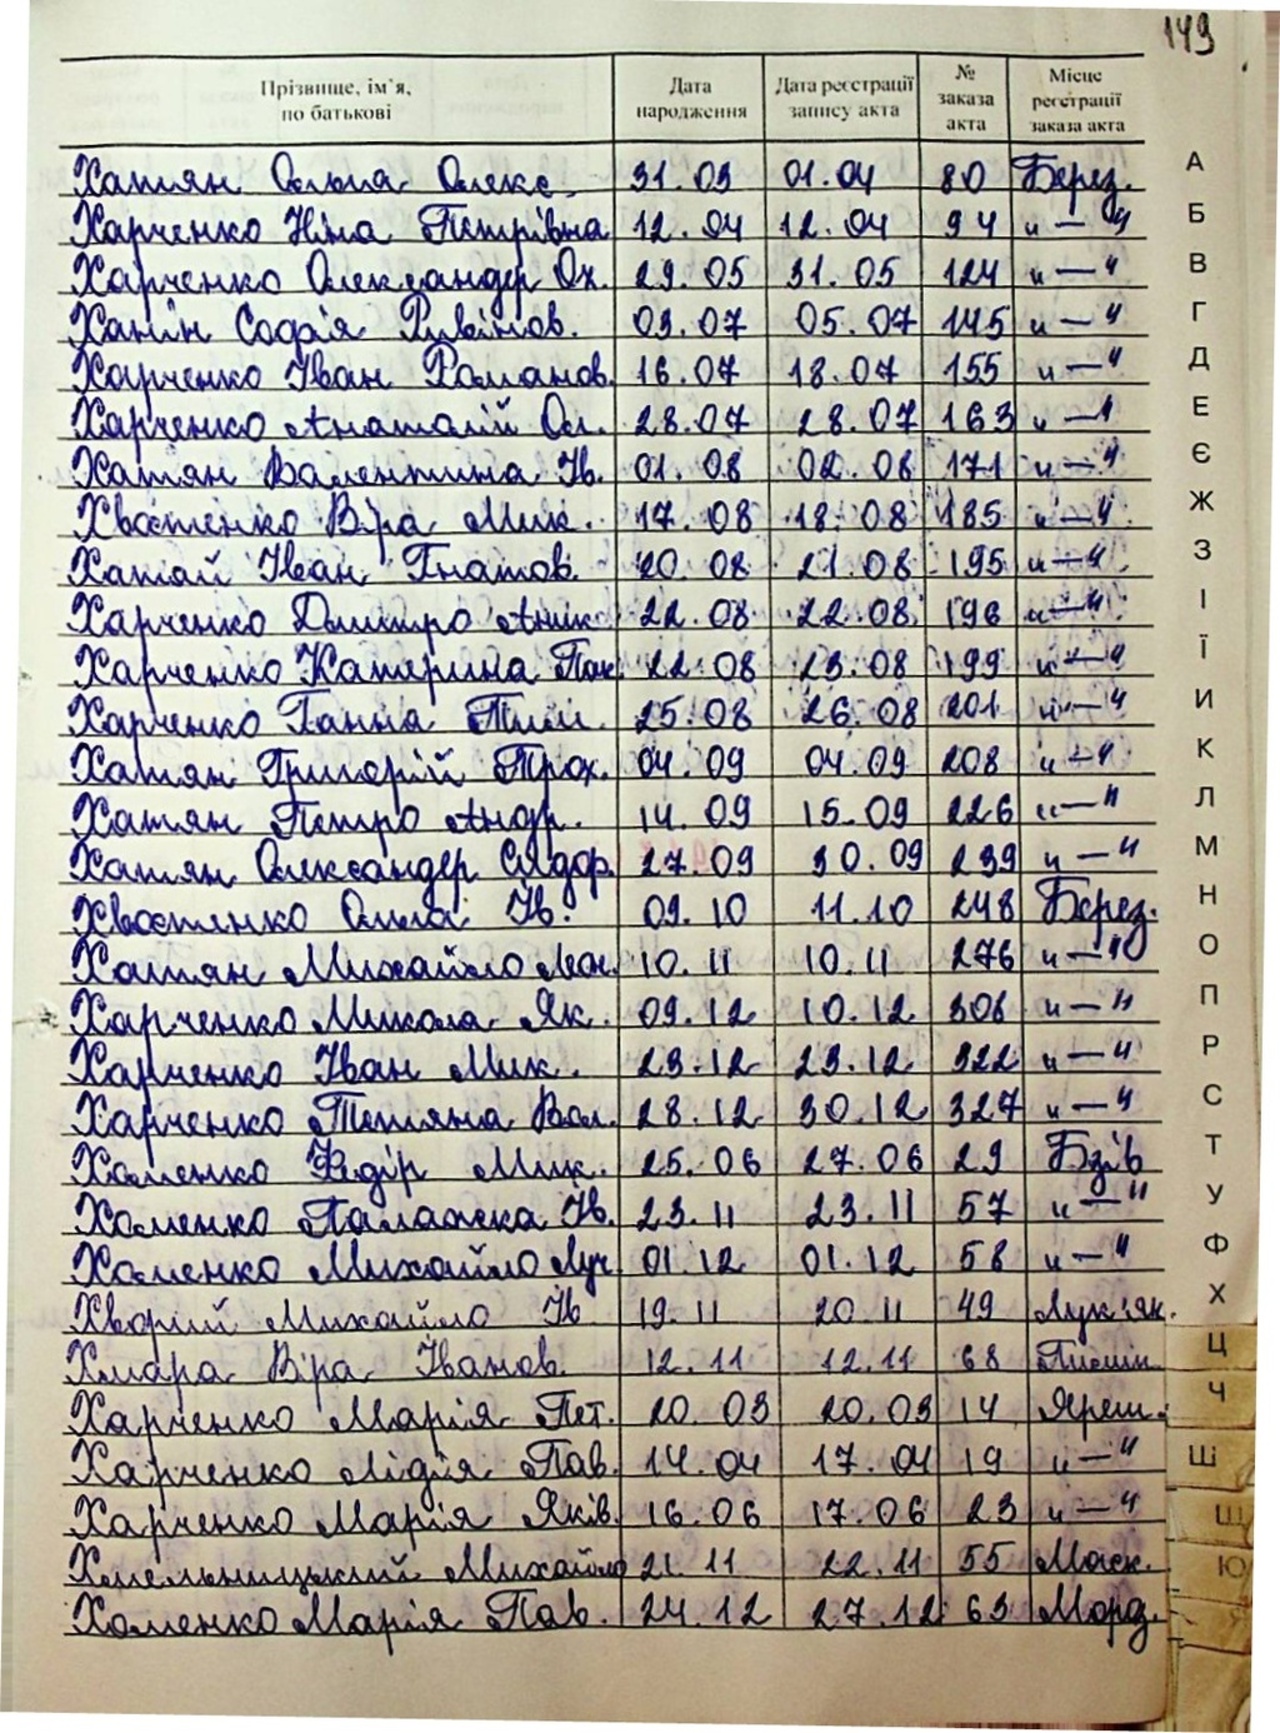 149
Прізвище, ім'я, по батькові Дата народження Дата реєстрації запису акта № заказа акта Місце реєстрації заказа акта
Хатян Ольга Олекс. 31.03 01.04 80 Берез.
Харченко Ніна Петрівна 12.04 12.04 94 и — и
Харченко Олександр Ох. 29.05 31.05 124 и — и
Ханін Софія Рувінов. 03.07 05.07 145 и — и
Харченко Іван Романов. 16.07 18.07 155 и — и
Харченко Анатолій Ол. 28.07 28.07 163 и — и
Хатян Валентина Ів. 01.08 02.08 171 и — и
Хвостенко Віра Мик. 17.08 18.08 185 и — и
Хатай Іван Гнатов. 20.08 21.08 195 и — и
Харченко Дмитро Анік. 22.08 22.08 196 и — и
Харченко Катерина 22.08 23.08 199 и — и
Харченко Ганна Тим. 25.08 26.08 201 и — и
Хатян Григорій Трох. 04.09 04.09 208 и — и
Хатян Петро Андр. 14.09 15.09 226 и — и
Хатян Олександр Сидор. 27.09 30.09 239 и — и
Хвостенко Ольга Ів. 09.10 11.10 248 Берез.
Хатян Михайло 10.11 10.11 276 и — и
Харченко Микола Як. 09.12 10.12 306 и — и
Харченко Іван Мик. 23.12 23.12 322 и — и
Харченко Тетяна Вол. 28.12 30.12 327 и — и
Хоменко Федір Мик. 25.06 27.06 29 Бзів
Хоменко Палажка Ів. 23.11 23.11 57 и — и
Хоменко Михайло Луч. 01.12 01.12 58 и — и
Хворий Михайло Ів 19.11 20.11 49 Лук'ян.
Хмара Віра Іванов. 12.11 12.11 68
Харченко Марія Пет. 20.03 20.03 14 Яреш.
Харченко Лідія Пав. 14.04 17.04 19 и — и
Харченко Марія Яків. 16.06 17.06 23 и — и
Хмельницький Михайло 21.11 22.11 55 Маск.
Хоменко Марія Пав. 24.12 27.12 63 Морз.
А
Б
В
Г
Д
Е
Є
Ж
З
І
Ї
И
К
Л
М
Н
О
П
Р
С
Т
У
Ф
Х
Ц
Ч
Ш
Щ
Ю
Я